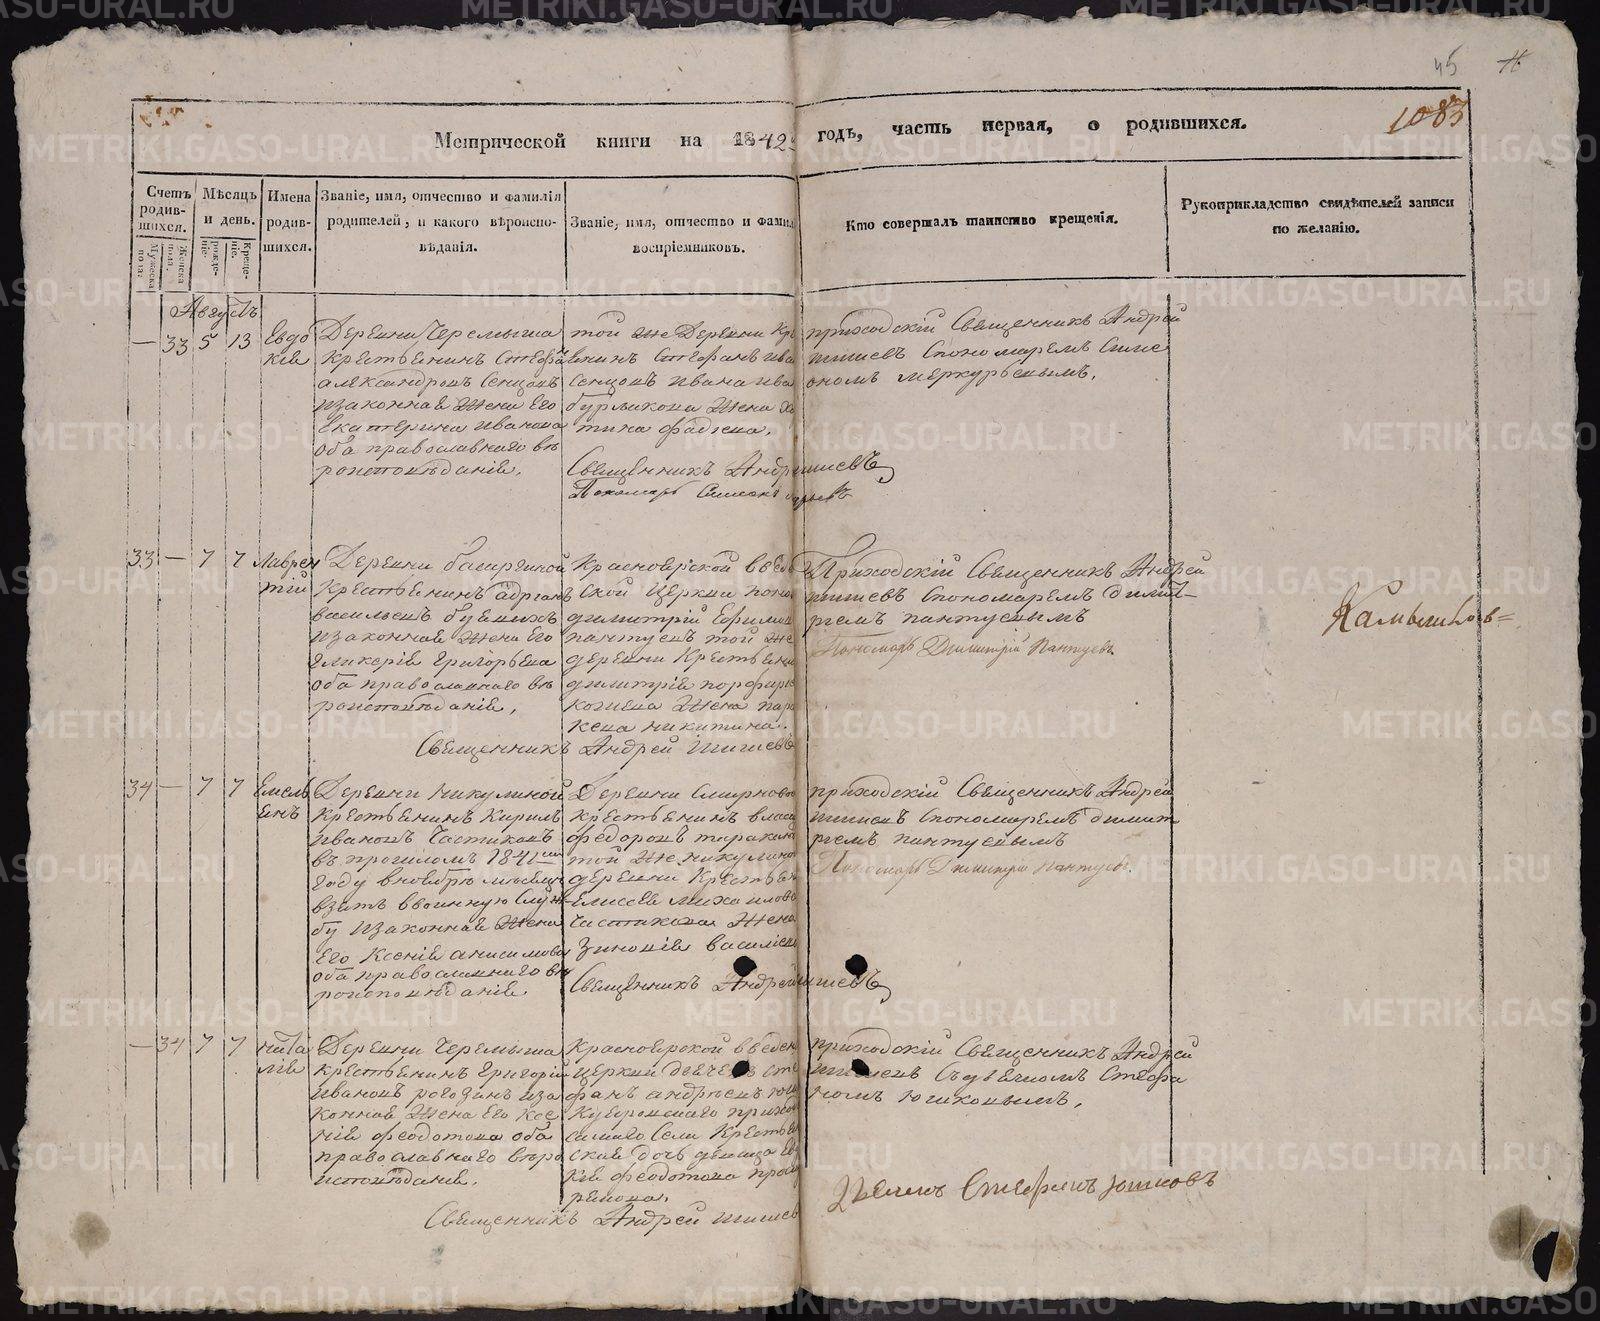 45
1083
Метрической книги на 1842й годъ, часть первая, о родившихся.
Счетъ родив-шихся.
Мужеска пола.
Женска пола.
Мѣсяцъ и день.
рожде-ніе.
креще-ніе.
Имена родив-шихся.
Званіе, имя, отчество и фамилія
родителей, и какого вѣроиспо-
вѣданія.
Званіе, имя, отчество и фамил
воспріемниковъ.
Кто совершалъ таинство крещенія.
Рукоприкладство свидѣтелей записи
по желанію.
Августъ
— 33 5 13
Евдо
кія
Деревни Черемыша
крестьянинъ Стефанъ
александровъ Сенцовъ
изаконная жена Его
Екатерина иванова
оба православнаго вѣ
роисповѣданія.
той же Деревни Кре
янинъ Стефанъ ива
сенцовъ ивана ива
бурлакова жена
тина фадѣева.
Священникъ Андрей шишевъ
Пономарь Симеонъ
приходскій Священникъ Андрей
шишевъ Спономаремъ Симе
ономъ меркурьевымъ.
33 — 7 7
Лаврен
тій
Деревни басаргиной
Крестьянинъ адріанъ
васильевъ
изаконная жена Его
гликерія григорьева
оба православнаго вѣ
роисповѣданія.
Красноярской введе
ской церкви поном
димитрій Ефимов
пантуевъ той же
деревни Крестьяни
димитрія порфирь
жена пара
кева никитина.
Священникъ Андрей шишевъ
Приходскій Священникъ Андрей
шишевъ Спономаремъ димит-
ріемъ пантуевымъ
Пономарь Димитрій Пантуевъ
Камышковъ
34 — 7 7
Емель
янъ
Деревни никулиной
Крестьянинъ Кирилъ
ивановъ Частиковъ
въ прошломъ 1841мъ
году вноябрѣ месяцѣ
взятъ ввоинную служ
бу изаконная жена
Его Ксенія анисимова
оба православнаго вѣ
роисповѣданія
Деревни Смирново
крестьянинъ власъ
федоровъ таракан
той же никулино
деревни Крестьян
Елисея михаилова
Частикова жена
зиновія василіева
Священникъ Андрей шишевъ
приходскій Священникъ Андрей
шишевъ Спономаремъ димит
ріемъ пантуевымъ
Пономарь Димитрій Пантуевъ.
— 34 7 7
ната
лія
Деревни Черемыша
крестьянинъ григорій
ивановъ рогозинъ иза
конная жена Его Ксе
нія феодотова оба
православнаго вѣро
исповѣданія.
Красноярской введен
церкви дьячекъ сте
фанъ андреевъ юш
приход
самаго Села Крестьян
ская дочь девица Евд
кія феодотова
Священникъ Андрей шишев
приходскій Священникъ Андрей
шишевъ Съдьячкомъ Стефа
номъ юшковымъ.
Дьячекъ Стефанъ юшковъ